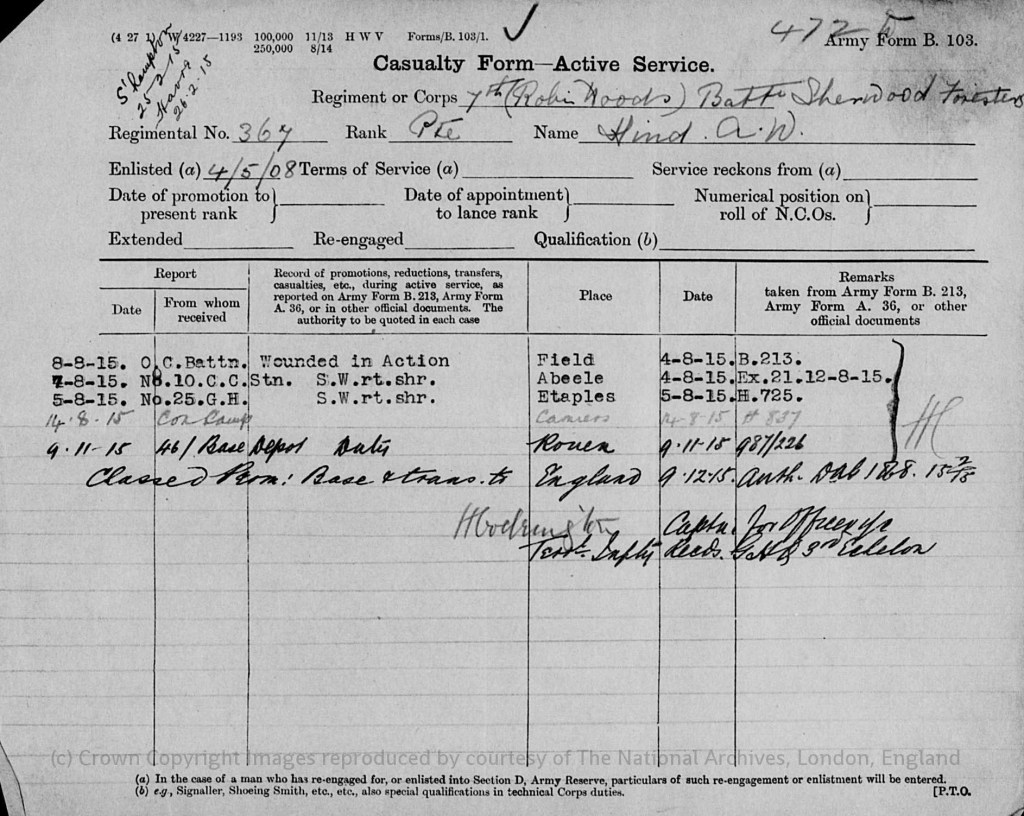 (4 27 1) W/4227—1193 100,000 11/13 H W V Forms/B. 103/1.
250,000 8/14
472
Army Form B. 103.
S'hampton
25-2-15
Havre
26.2.15
Casualty Form—Active Service.
Regiment or Corps 7th (Robin Hoods) Battn Sherwood Foresters
Regimental No. 367 Rank Pte Name Hind. A.W.
Enlisted (a) 4/5/08 Terms of Service (a) Service reckons from (a)
Date of promotion to present rank } Date of appointment to lance rank } Numerical position on roll of N.C.Os. }
Extended Re-engaged Qualification (b)
Report
Date
From whom received
Record of promotions, reductions, transfers, casualties, etc., during active service, as reported on Army Form B. 213, Army Form A. 36, or in other official documents. The authority to be quoted in each case
Place
Date
Remarks taken from Army Form B. 213, Army Form A. 36, or other official documents
8-8-15. O.C.Battn. Wounded in Action Field 4-8-15. B.213.
7-8-15. No.10.C.C.Stn. S.W.rt.shr. Abeele 4-8-15. Ex.21.12-8-15.
5-8-15. No.25.G.H. S.W.rt.shr. Etaples 5-8-15. H.725.
14.8.15 Con Camp Camiers 14-8-15 H 837
9.11-15 46/Base Depot Duty Rouen 9.11-15 987/226
Classed Perm: Base & trans. to England 9.12.15. Auth.
Captn. for Officer i/c
Terrtl. Infty Recds. GHQ 3rd Echelon
(c) Crown Copyright Images reproduced by courtesy of The National Archives, London, England
(a) In the case of a man who has re-engaged for, or enlisted into Section D, Army Reserve, particulars of such re-engagement or enlistment will be entered.
(b) e.g., Signaller, Shoeing Smith, etc., etc., also special qualifications in technical Corps duties.
[P.T.O.